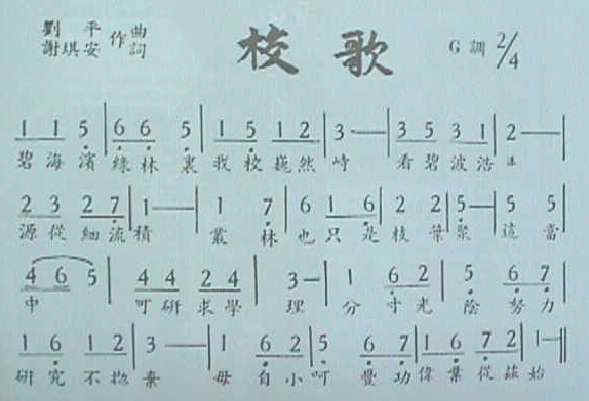 劉平 作曲
謝琪安 作詞
校歌
G調 2/4
1 1 5 | 6 6 5 | 1 5 1 2 | 3 — | 3 5 3 1 | 2 — |
碧海濱 綠林裏 我校巍然峙 看碧波浩
2 3 2 7 | 1 — | 1 7 | 6 1 6 | 2 2 | 5 — | 5 5
源從細流積 叢林也只是枝葉聚 這當
4 6 5 | 4 4 2 4 | 3 — | 1 6 2 | 5 6 7 |
中 可研求學理 分寸光陰努力
1 6 1 2 | 3 — | 1 6 2 | 5 6 7 | 1 6 7 2 | 1 — ‖
研究不拋棄 毋自小呵 豐功偉業從茲始